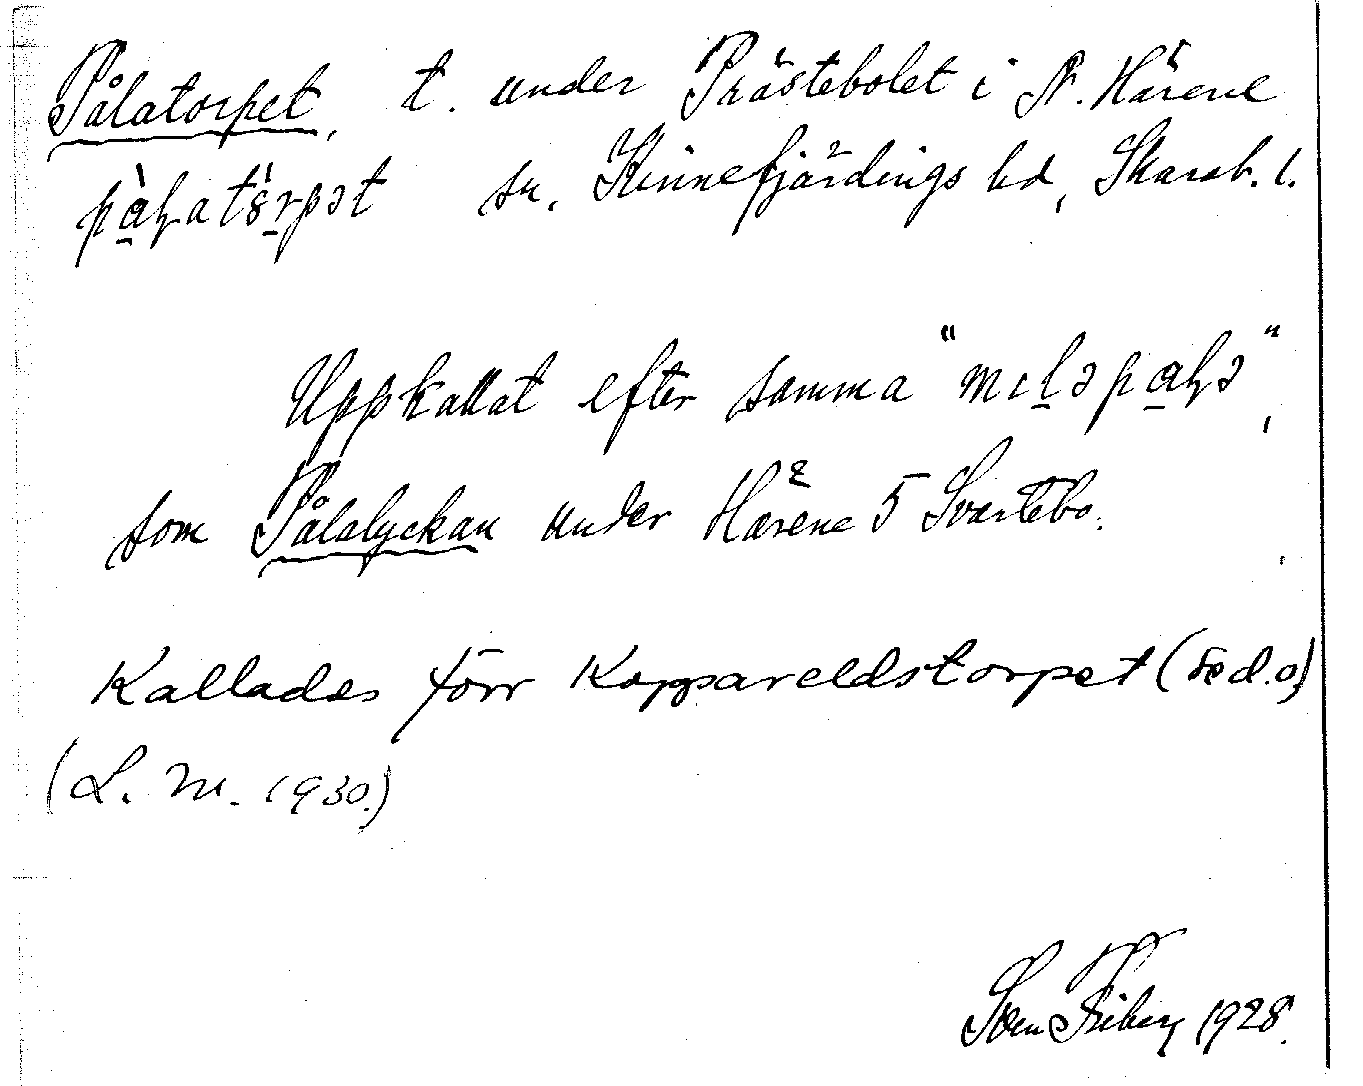 Pålatorpet, t. under Prästebolet i N. Härene
pàɫatǿrpət sn, Kinnefjärdings hd, Skarab. l.
Uppkallat efter samma "mɩlspaɫə",
som Pålalyckan under Härene 5 Svartebo.
Kallades förr Koppareldstorpet (
(L. M. 1930.)
Sven Friberg 1928.